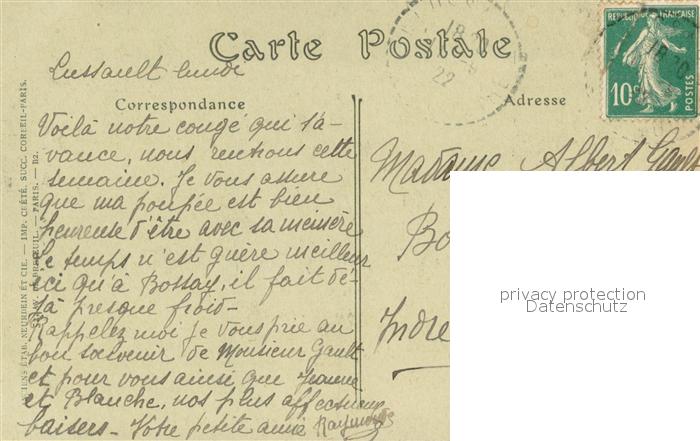 Carte Postale
RÉPUBLIQUE FRANÇAISE
10c
POSTES
18
22
Lussault lundi
Correspondance
Voilà notre congé qui s'a-
vance, nous rentrons cette
semaine. Je vous assure
que ma poupée est bien
heureuse d'être avec sa mémère
Le temps n'est guère meilleur
ici qu'à Bossay, il fait dé-
jà presque froid-
Rappelez moi je vous prie au
bon souvenir de Monsieur Gault
et pour vous ainsi que Jeanne
et Blanche, nos plus affectueux
baisers- Votre petite amie Raymonde
Adresse
Madame Albert Gault
Bo
Indre
NEURDEIN ET CIE. — IMP. CRÉTÉ, SUCC. CORBEIL-PARIS.
PARIS. — B2.
privacy protection
Datenschutz